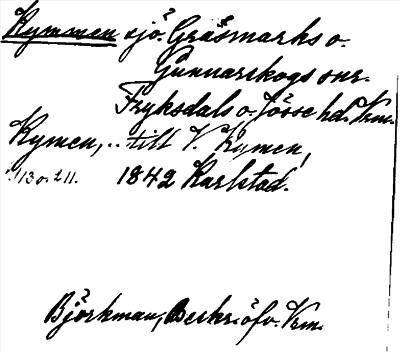 Kymmen sjö. Gräsmarks o.
Gunnarskogs snr.
Fryksdals o. Jösse hd. Vrm.
Kymen, .. till V. Kymen,
s 113 o. 211. 1842 Karlstad.
Björkman, Beskr. öfv. Vrm.